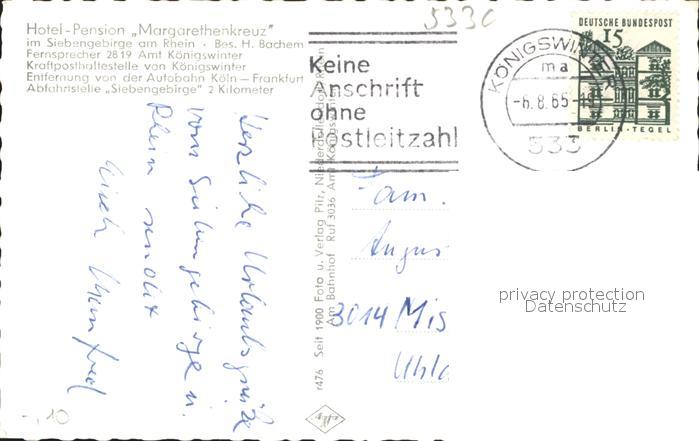 Hotel-Pension „Margarethenkreuz"
im Siebengebirge am Rhein · Bes. H. Bachem
Fernsprecher 2819 Amt Königswinter
Kraftposthaltestelle von Königswinter
Entfernung von der Autobahn Köln – Frankfurt
Abfahrtstelle „Siebengebirge" 2 Kilometer
Herzliche Urlaubsgrüße
vom Siebengebirge u.
Rhein sendet
Manfred
-,10
r476 Seit 1900 Foto u. Verlag Pilz, Niederdollendorf a. Rhein
Am Bahnhof Ruf 3036 Amt Königswinter
333c
Keine
Anschrift
ohne
Postleitzahl
KÖNIGSWINTER
ma
-6.8.65-
533
DEUTSCHE BUNDESPOST
15
BERLIN-TEGEL
Fam.
Augus
3014 Mis
privacy protection
Datenschutz